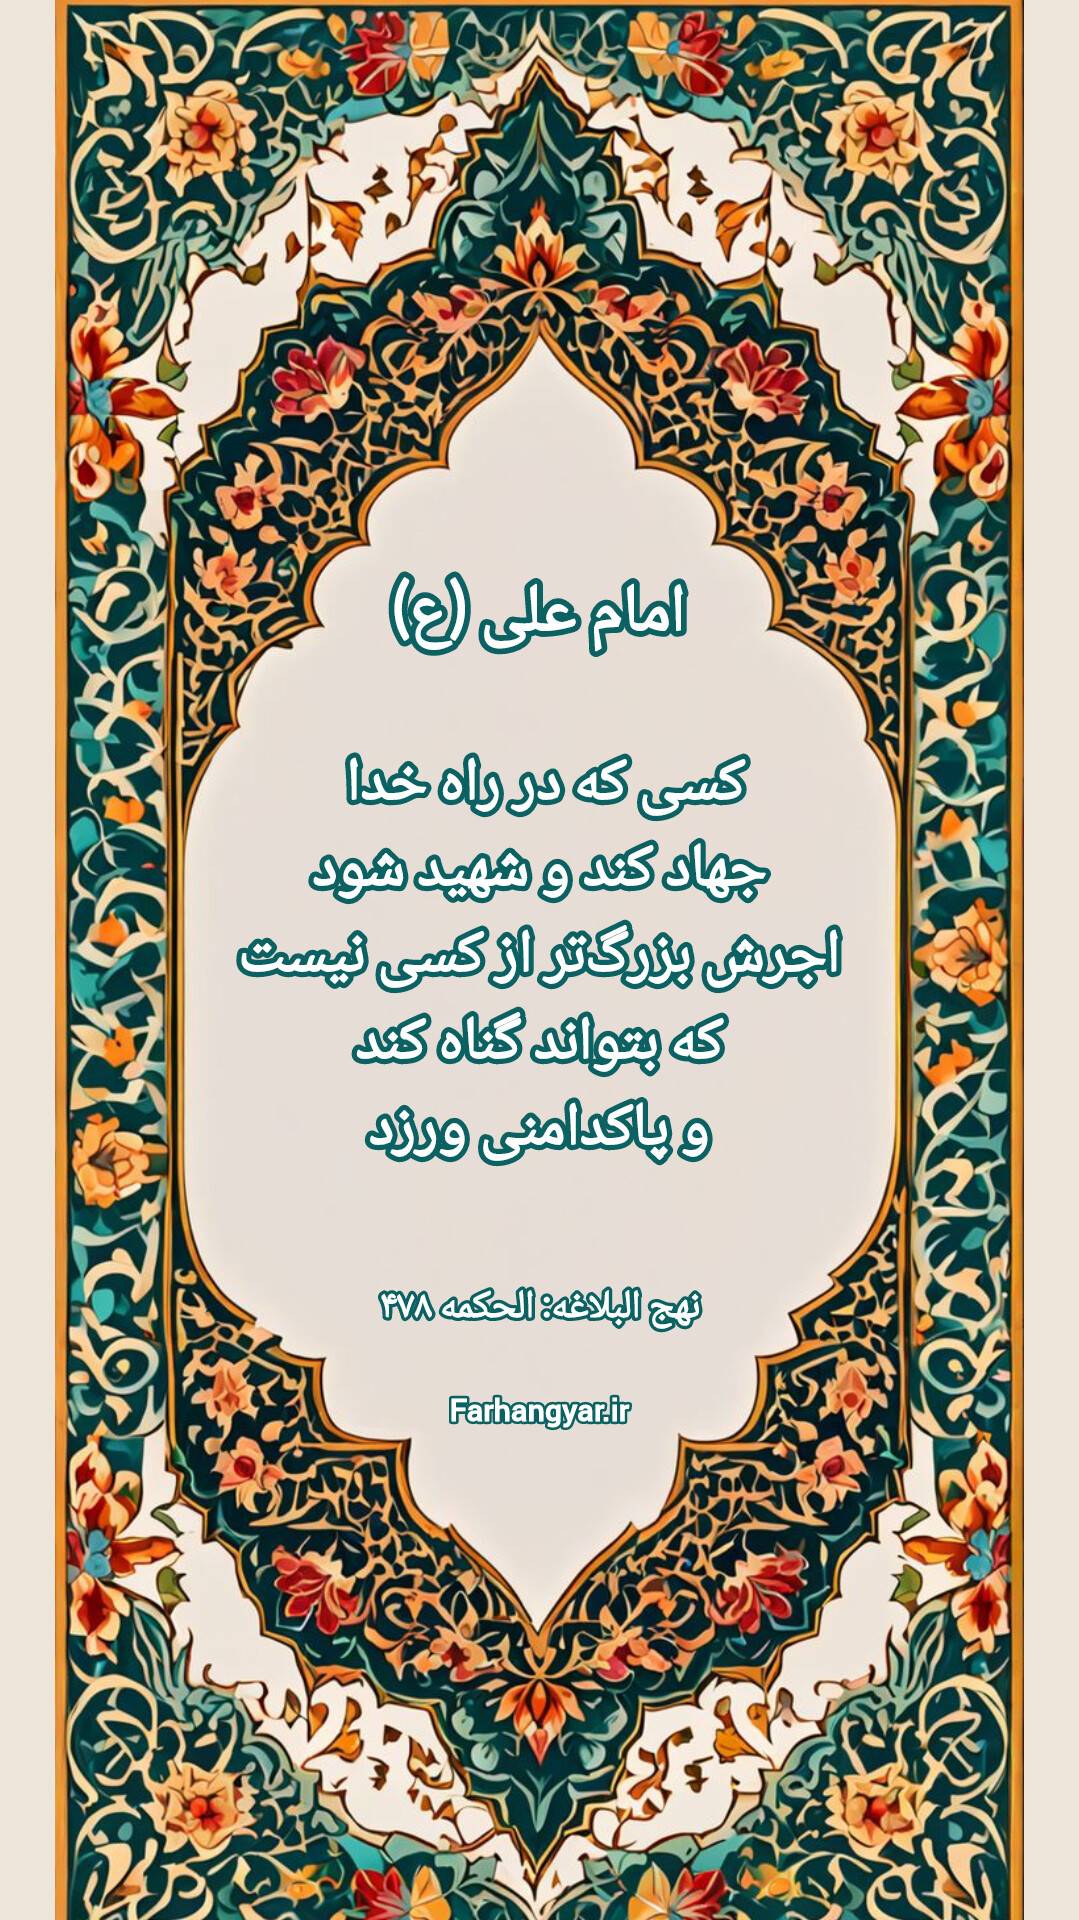 امام علی (ع)
کسی که در راه خدا
جهاد کند و شهید شود
اجرش بزرگ‌تر از کسی نیست
که بتواند گناه کند
و پاکدامنی ورزد
نهج البلاغه: الحکمه ۴۷۸
Farhangyar.ir